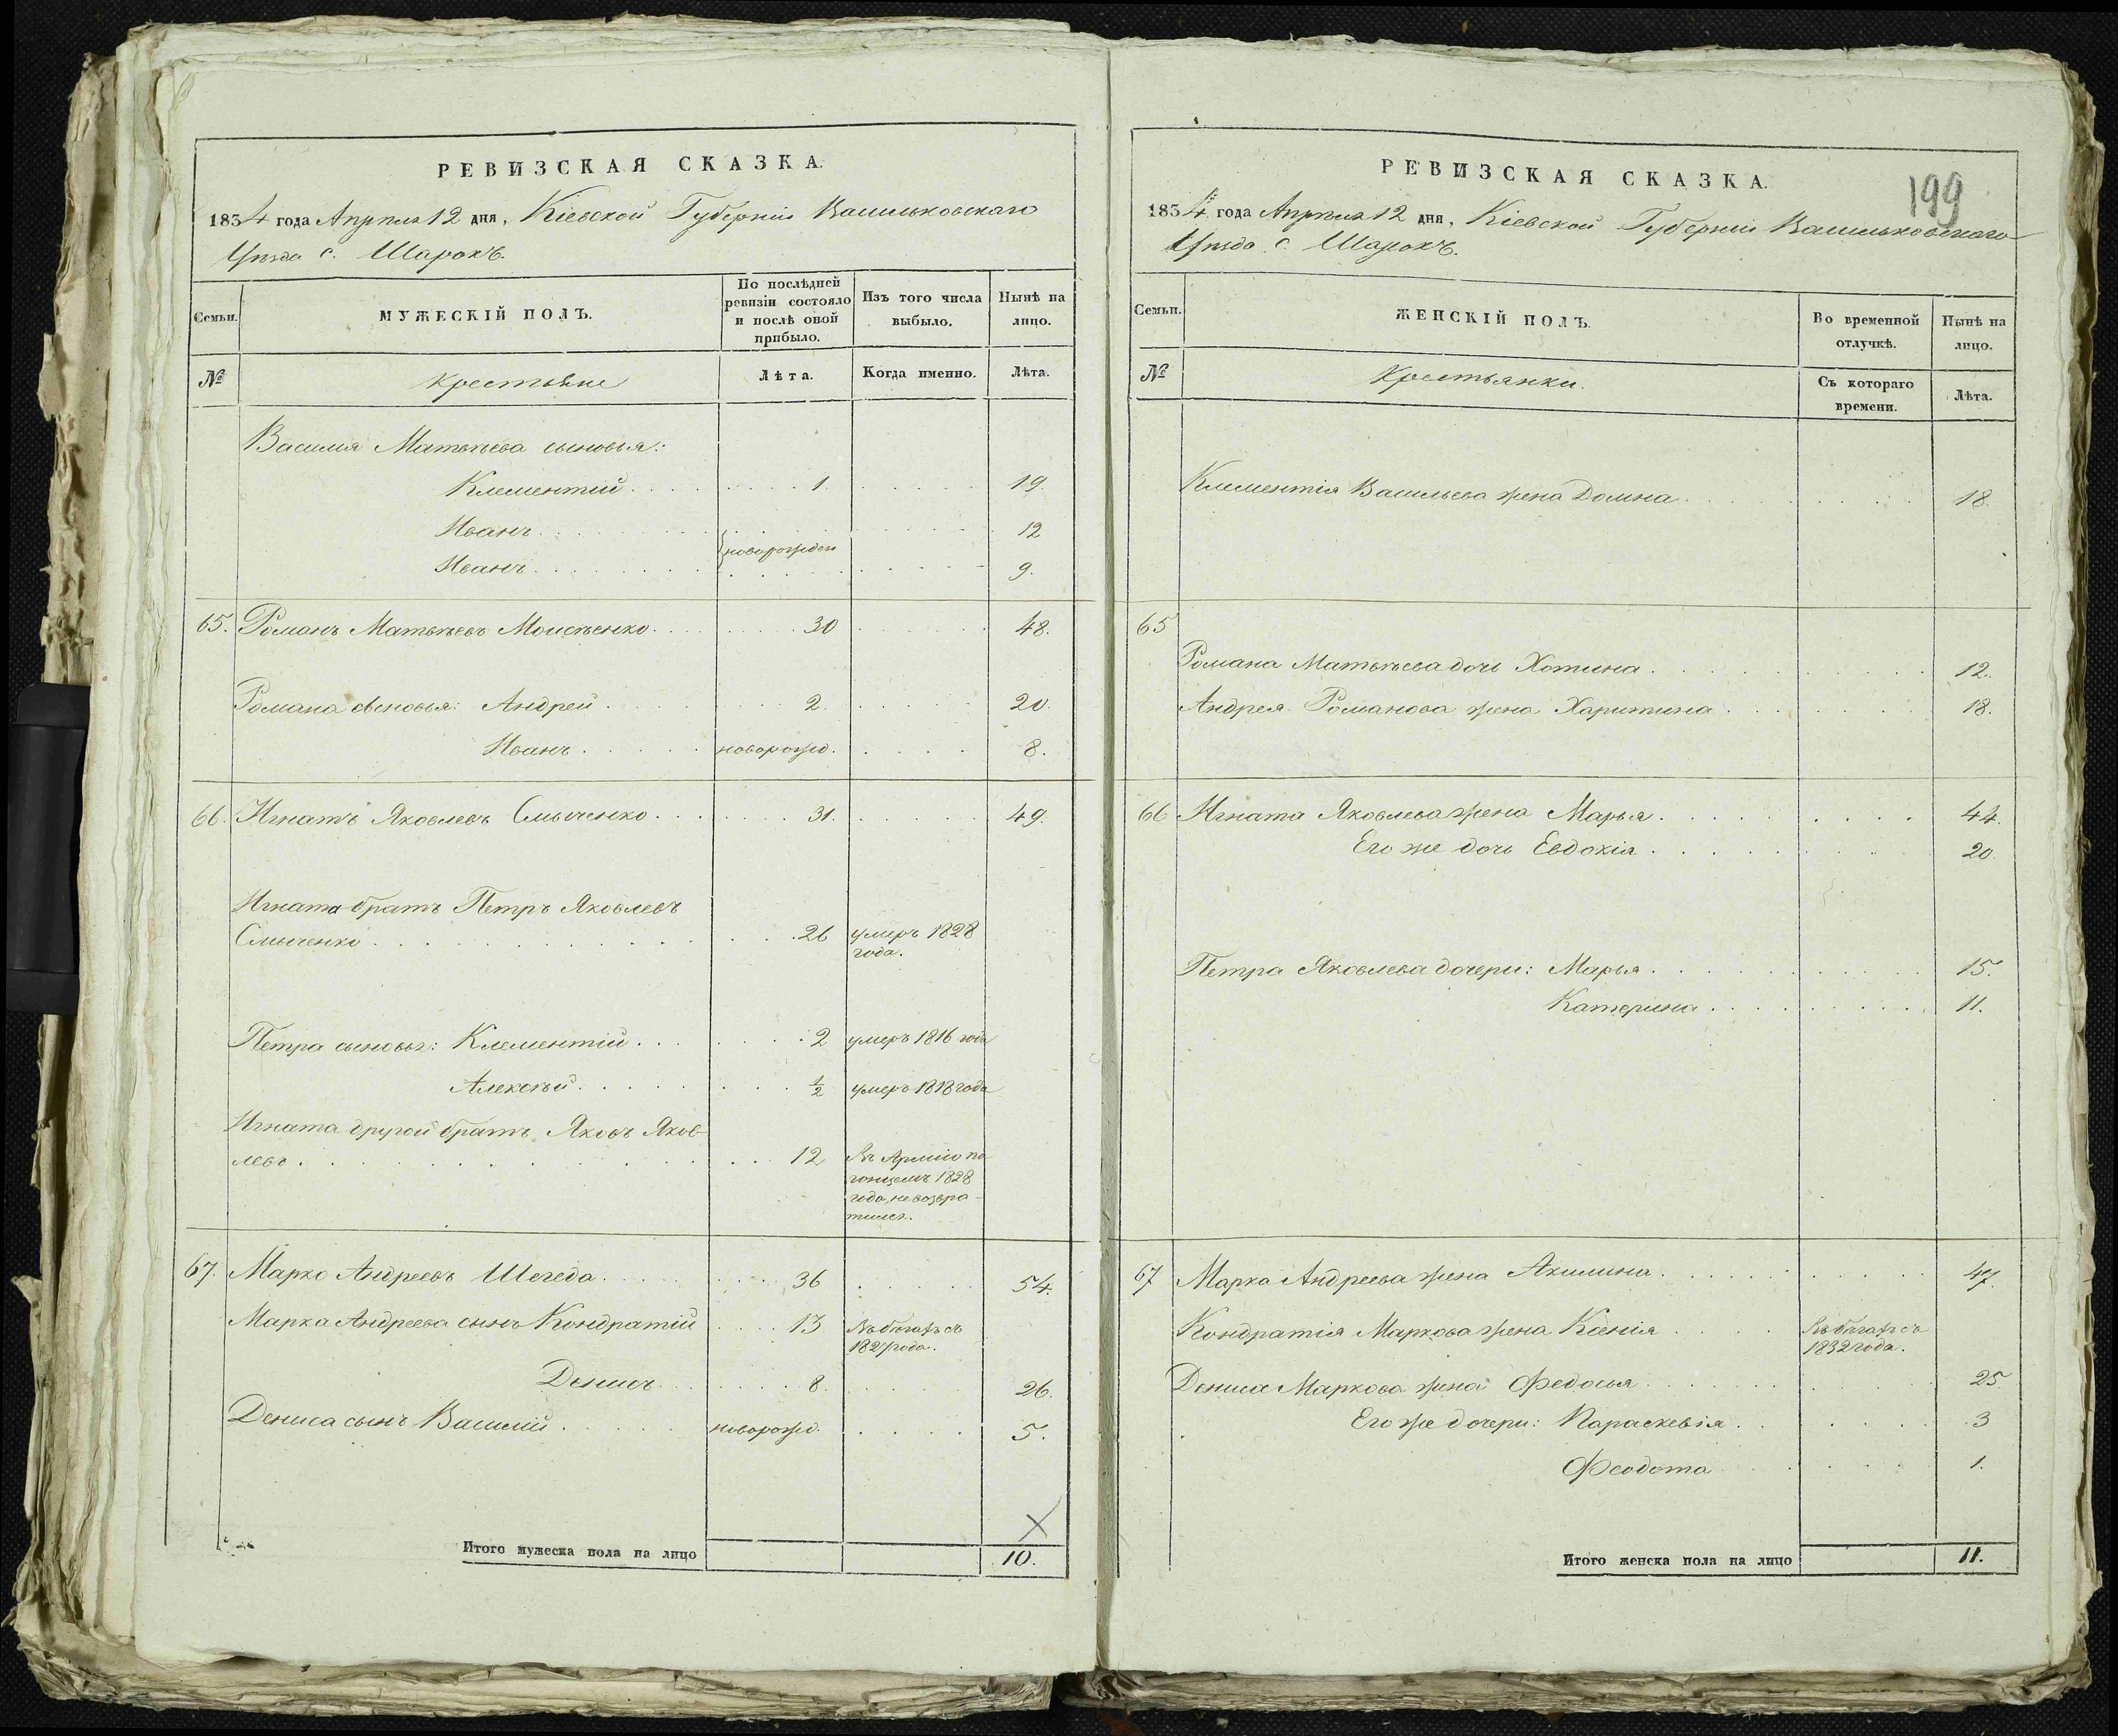 РЕВИЗСКАЯ СКАЗКА.
1834 года Апрѣля 12 дня, Кіевской Губерніи Васильковскаго
Уѣзда с. Шарокъ.
Семьи.
МУЖЕСКІЙ ПОЛЪ.
По послѣдней
ревизіи состояло
и послѣ оной
прибыло.
Изъ того числа
выбыло.
Нынѣ на
лицо.
№
Крестьяне
Лѣта.
Когда именно.
Лѣта.
Василія Матвѣева сыновья:
Клементій 1. 19.
Иванъ 12
новорожден
Иванъ 9.
65. Романъ Матвѣевъ Моисѣенко 30 48.
Романа сыновья: Андрей 2. 20.
Иванъ новорожд. 8.
66. Игнатъ Яковлевъ Смыченко 31. 49.
Игната братъ Петръ Яковлевъ
Смыченко 26 умеръ 1828
года.
Петра сыновья: Клементій 2 умеръ 1816 года
Алексѣй ½ умеръ 1818 года
Игната другой братъ Яковъ Яков-
левъ 12 Въ Армію по
гонцемъ 1828
года, невозвра-
тился.
67. Марко Андреевъ Шегеда 36 54.
Марка Андреева сынъ Кондратій 13 Въ бѣгахъ съ
1827 года.
Денисъ 8. 26.
Дениса сынъ Василій новорожд. 5.
Итого мужеска пола на лицо 10.
РЕВИЗСКАЯ СКАЗКА.
199
1834 года Апрѣля 12 дня, Кіевской Губерніи Васильковскаго
Уѣзда с. Шарокъ.
Семьи.
ЖЕНСКІЙ ПОЛЪ.
Во временной
отлучкѣ.
Нынѣ на
лицо.
№
Крестьянки.
Съ котораго
времени.
Лѣта.
Клементія Васильева жена Домна 18.
65
Романа Матвѣева дочь Хотина 12.
Андрея Романова жена Харитина 18.
66 Игната Яковлева жена Марья 44.
Его же дочь Евдокія 20.
Петра Яковлева дочери: Марья 15.
Катерина 11.
67 Марка Андреева жена Акилина 47.
Кондратія Маркова жена Ксенія Въ бѣгахъ съ
1832 года.
Дениса Маркова жена Федосья 25
Его же дочери: Параскевія 3
Феодота 1.
Итого женска пола на лицо 11.